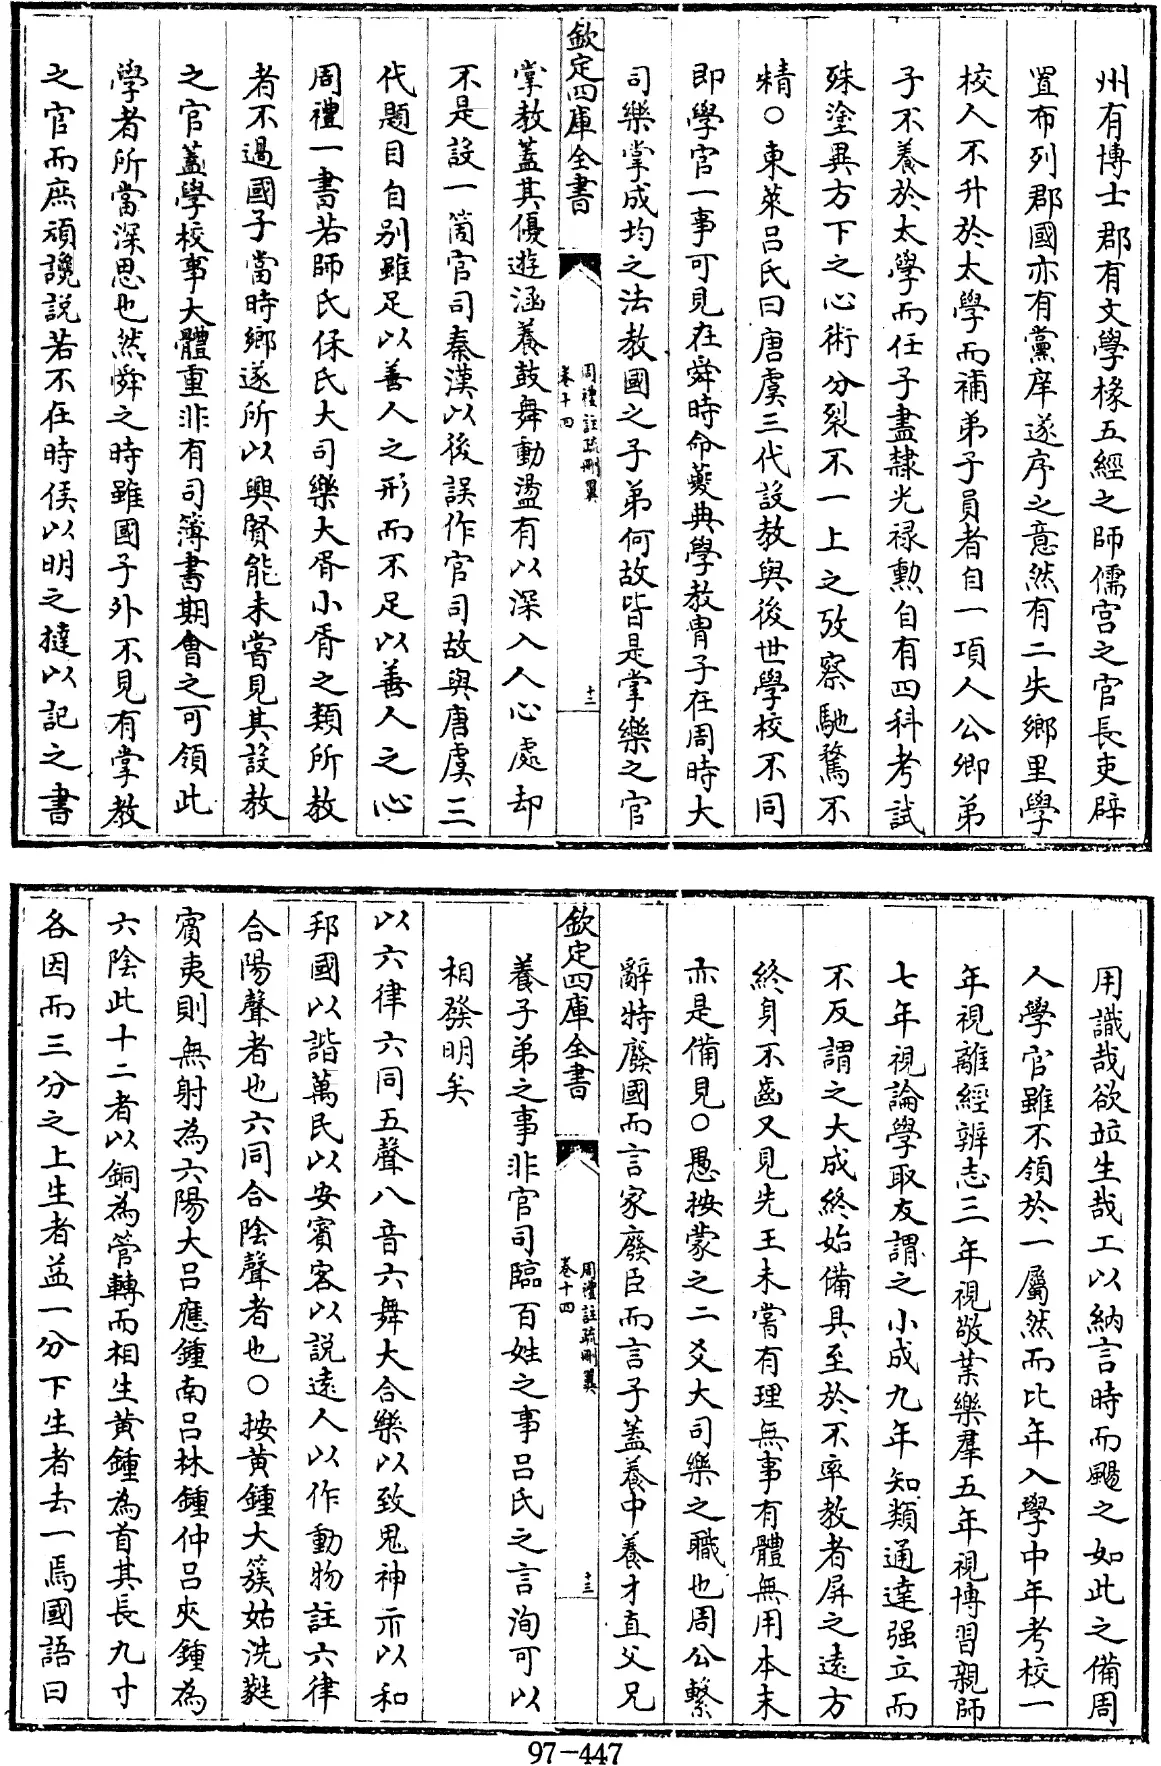 州有博士郡有文學掾五經之師儒宫之官長吏辟
置布列郡國亦有黨庠遂序之意然有二失鄉里學
校人不升於太學而補弟子員者自一項人公卿弟
子不養於太學而任子盡隸光禄勲自有四科考試
殊塗異方下之心術分裂不一上之攷察馳騖不
精○東萊吕氏曰唐虞三代設教與後世學校不同
即學官一事可見在舜時命夔典學教胄子在周時大
司樂掌成均之法教國之子弟何故皆是掌樂之官
欽定四庫全書
周禮註疏刪翼
卷十四
十三
掌教蓋其優遊涵養鼓舞動盪有以深入人心處却
不是設一箇官司秦漢以後誤作官司故與唐虞三
代題目自别雖足以善人之形而不足以善人之心
周禮一書若師氏保氏大司樂大胥小胥之類所教
者不過國子當時鄉遂所以興賢能未嘗見其設教
之官蓋學校事大體重非有司簿書期會之可領此
學者所當深思也然舜之時雖國子外不見有掌教
之官而庶頑讒説若不在時侯以明之撻以記之書
用識哉欲竝生哉工以納言時而颺之如此之備周
人學官雖不領於一屬然而比年入學中年考校一
年視離經辨志三年視敬業樂羣五年視博習親師
七年視論學取友謂之小成九年知類通達强立而
不反謂之大成終始備具至於不率教者屏之遠方
終身不齒又見先王未嘗有理無事有體無用本末
亦是備見○愚按蒙之二爻大司樂之職也周公繫
辭特廢國而言家廢臣而言子蓋養中養才直父兄
欽定四庫全書
周禮註疏刪翼
卷十四
十三
養子弟之事非官司臨百姓之事吕氏之言洵可以
相發明矣
以六律六同五聲八音六舞大合樂以致鬼神示以和
邦國以諧萬民以安賓客以説遠人以作動物註六律
合陽聲者也六同合陰聲者也○按黄鍾大簇姑洗蕤
賓夷則無射為六陽大吕應鍾南吕林鍾仲吕夾鍾為
六陰此十二者以銅為管轉而相生黄鍾為首其長九寸
各因而三分之上生者益一分下生者去一焉國語曰
97-447